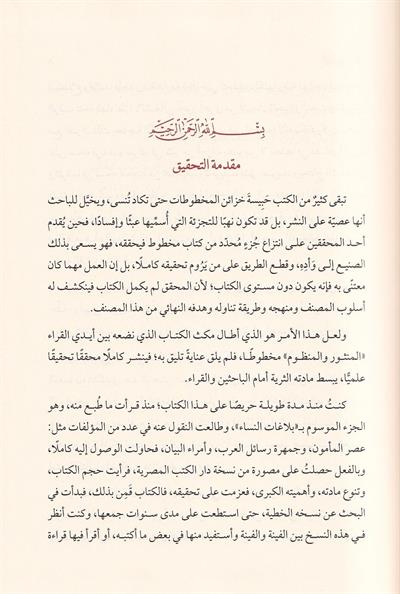 بِسْمِ اللَّهِ الرَّحْمَنِ الرَّحِيمِ
مقدمة التحقيق
تبقى كثيرٌ من الكتب حَبِيسةَ خزائن المخطوطات حتى تكاد تُنسى، ويخيَّل للباحث
أنها عصيّة على النشر، بل قد تكون نهبًا للتجزئة التي أُسمّيها عبثًا وإفسادًا، فحين يُقدم
أحد المحققين على انتزاع جُزءٍ مُحدّد من كتاب مخطوط فيحققه، فهو يسعى بذلك
الصنيع إلى وَأدِهِ، وقطع الطريق على من يَرُوم تحقيقه كاملًا، بل إن العمل مهما كان
معتنًى به فإنه يكون دون مستوى الكتاب؛ لأن المحقق لم يكمل الكتاب فينكشف له
أسلوب المصنف ومنهجه وطريقة تناوله وهدفه النهائي من هذا المصنف.
ولعل هذا الأمر هو الذي أطال مكث الكتاب الذي نضعه بين أيدي القراء
«المنثور والمنظوم» مخطوطًا، فلم يلق عنايةً تليق به؛ فينشر كاملًا محققًا تحقيقًا
علميًّا، يبسط مادته الثرية أمام الباحثين والقراء.
كنتُ منذ مدة طويلة حريصًا على هذا الكتاب؛ منذ قرأت ما طُبع منه، وهو
الجزء الموسوم بـ«بلاغات النساء»، وطالعت النقول عنه في عدد من المؤلفات مثل:
عصر المأمون، وجمهرة رسائل العرب، وأمراء البيان، فحاولت الوصول إليه كاملًا،
وبالفعل حصلتُ على مصورة من نسخة دار الكتب المصرية، فرأيت حجم الكتاب،
وتنوع مادته، وأهميته الكبرى، فعزمت على تحقيقه، فالكتاب قَمِن بذلك، فبدأت في
البحث عن نسخه الخطية، حتى استطعت على مدى سنوات جمعها، وكنت أنظر
في هذه النسخ بين الفينة والفينة وأستفيد منها في بعض ما أكتبه، أو أقرأ فيها قراءة